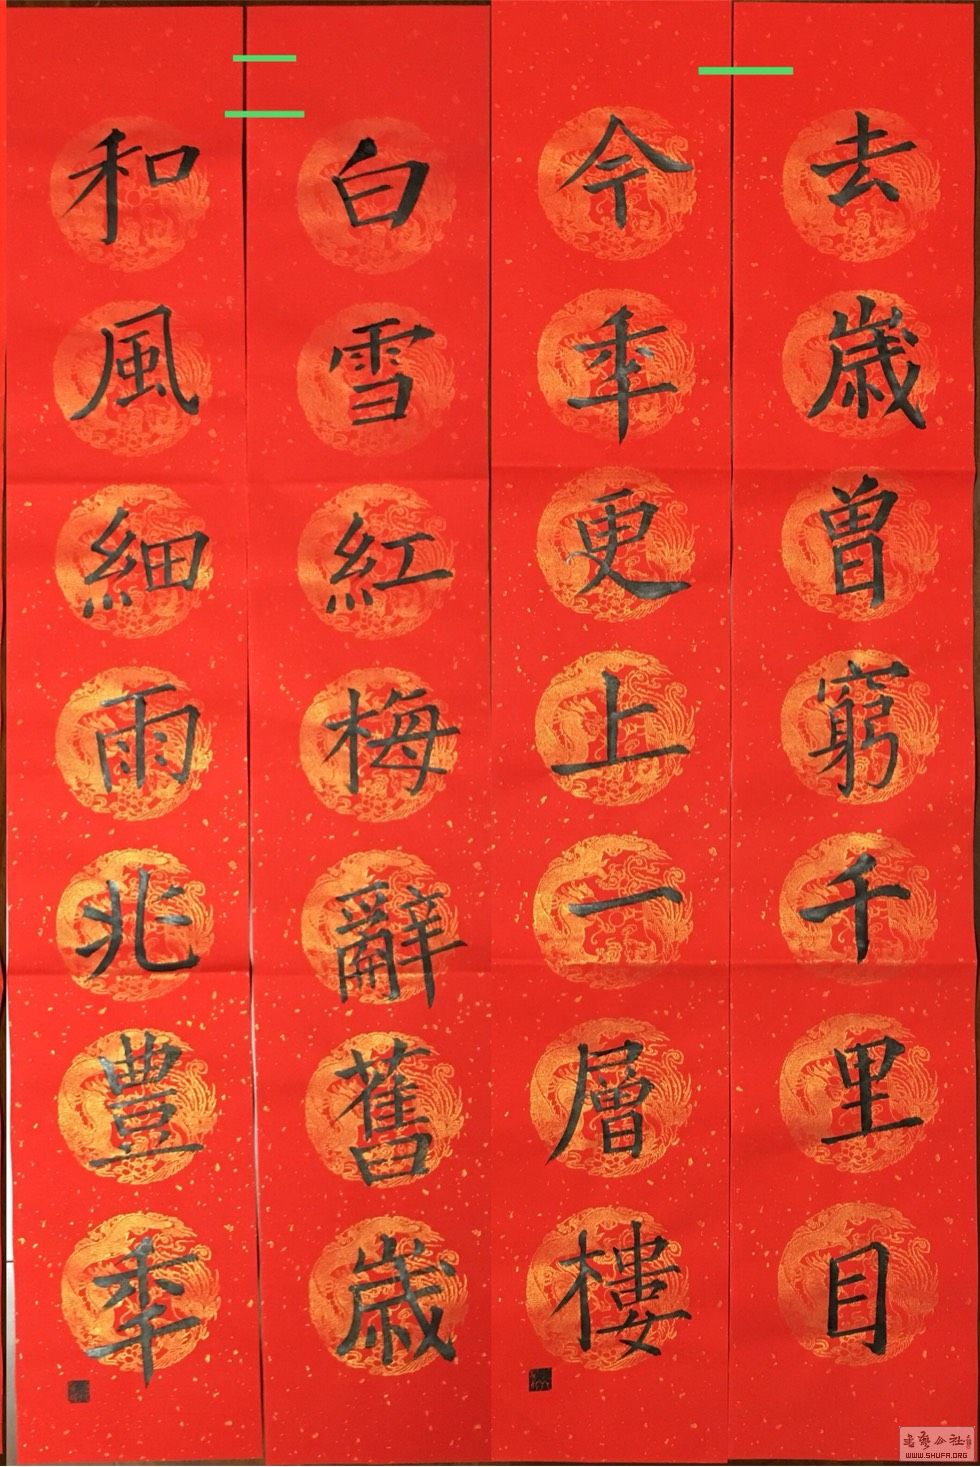 去歲曾窮千里目
今秊更上一層樓
白雪紅梅辭舊歲
和風細雨兆豐秊
WWW.SHUFA.ORG